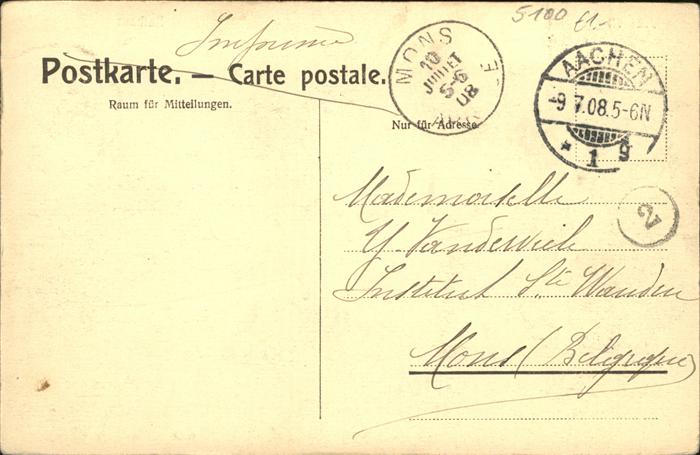 5100
Imprimé
Postkarte. — Carte postale.
Raum für Mitteilungen.
Nur für Adresse.
MONS
10
JUILLET
5-6
08
AACHEN
-9 7.08.5-6N
* 1 g
2
Mademoiselle
Y. Vandeviele
Institut Ste Waudru
Mons (Belgique)